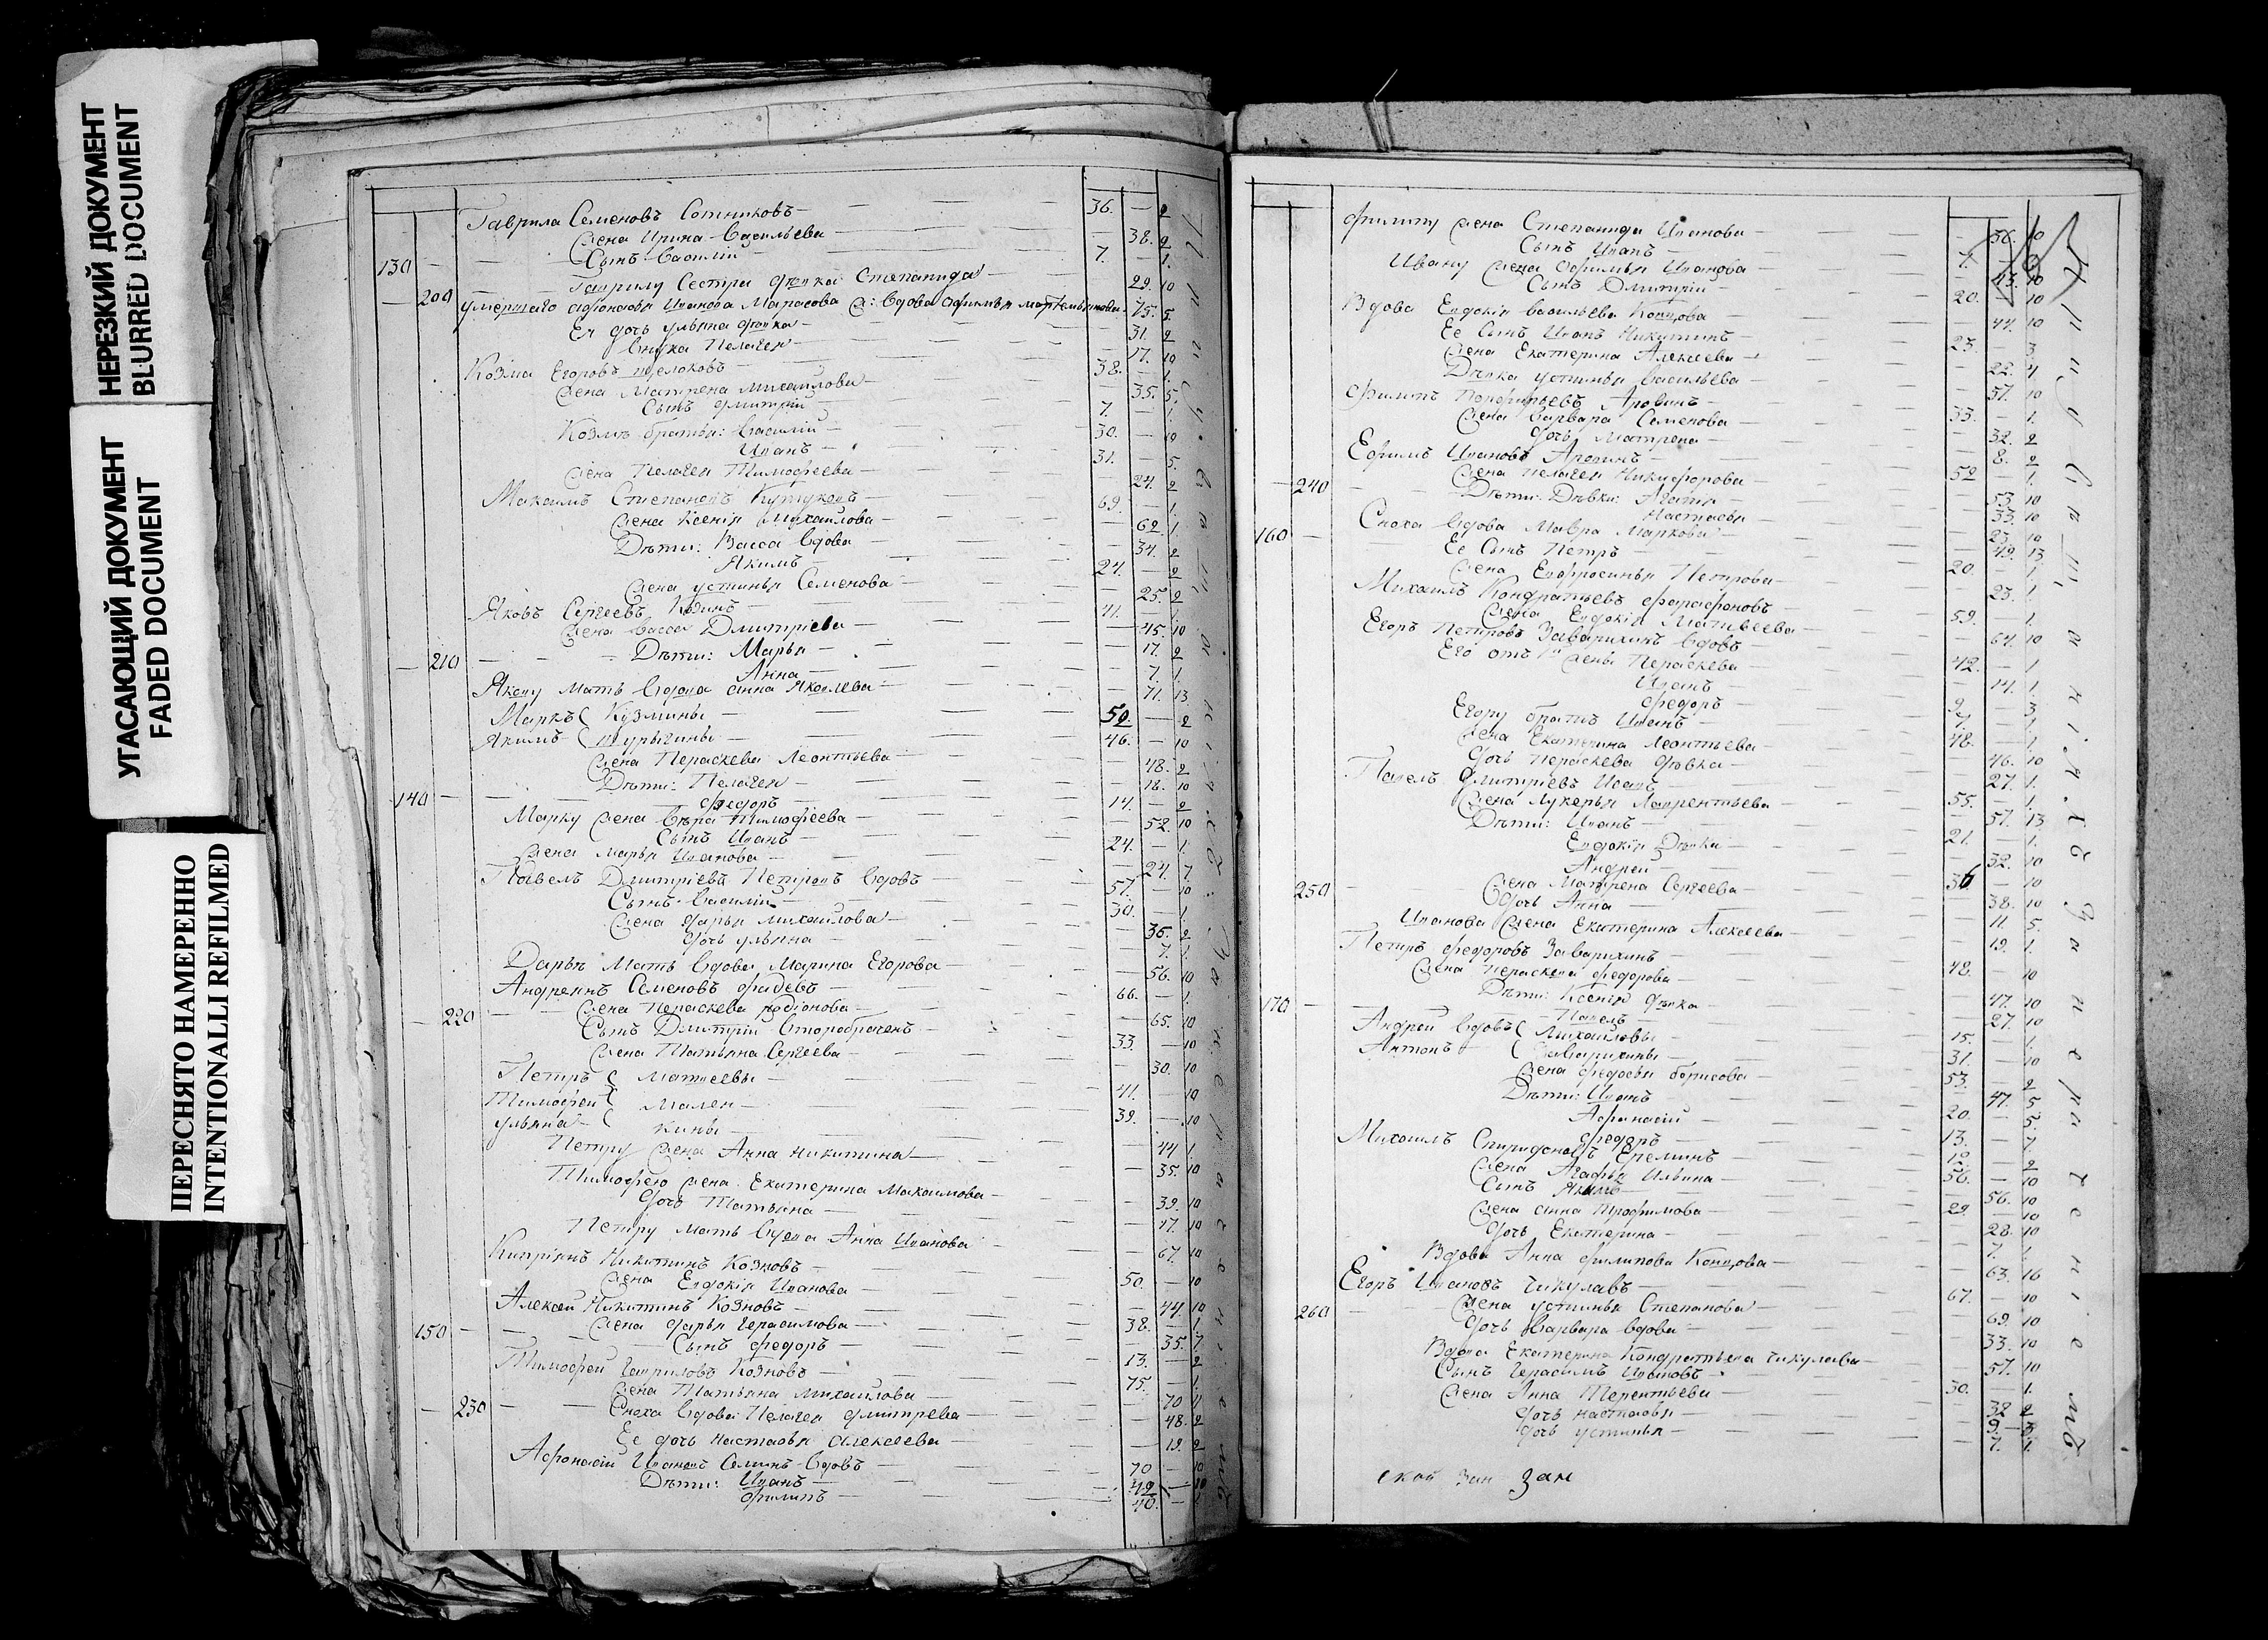 НЕРЕЗКИЙ ДОКУМЕНТ
BLURRED DOCUMENT
УГАСАЮЩИЙ ДОКУМЕНТ
FADED DOCUMENT
ПЕРЕСНЯТО НАМЕРЕННО
INTENTIONALLI REFILMED
Гаврила Семеновъ Сотниковъ 36. 2
жена Ирина Васильева 38. 2
130 Сынъ Василiй 7. 1.
Гаврилу Сестра девка Степанида 29. 10
200 умершаго Афонасья Иванова Марасова ж: вдова Афимья Мартемьянова 75. 5.
Ея дочь Ульяна девка 31. 2
внука Пелагея 17. 10
Козма Егоровъ Щелоковъ 38. 1.
жена Матрена Михайлова 35. 5.
Сынъ Дмитрiй 7. 1.
Козмѣ братья: Василiй 30. 10
Иванъ 31. 5.
жена Пелагея Тимофеева 24. 2
Максимъ Степановъ 69. 1.
жена Ксенiя Михайлова 62. 1.
Дѣти: Васса вдова 34. 2
Якимъ 24. 2
жена Устинья Семенова 25. 2
Яковъ Сергеевъ Козинъ 41. 1.
жена Васса Дмитрiева 45. 10
210 Дѣти: Марья 17. 2
Анна 7. 1.
Якову мать вдова Анна Яковлева 71. 13
Маркъ Кузмины 59. 2
Якимъ Шурыгины 46. 10
жена Пераскева Леонтьева 48. 2
Дѣти: Пелагея 18. 10
140 Федоръ 14. 2
Марку жена Вѣра Тимофеева 52. 10
Сынъ Иванъ 24. 1.
жена Марья Иванова 24. 7
Павелъ Дмитрiевъ Петровъ вдовъ 57. 10
Сынъ Василiй 30. 1.
жена Дарья Михайлова 35. 2
дочь Ульяна 7. 1.
Дарьѣ мать вдова Марина Егорова 56. 10
Андреянъ Семеновъ Фадеевъ 66. 1.
жена Пераскева Родiонова 65. 10
220 Сынъ Дмитрiй второбраченъ 33. 10
жена Татьяна Сергеева 30. 10
Петръ Матвеевы 41. 10
Тимофей Мален 39. 10
Ульяна кины 44 1.
Петру жена Анна Никитина 35. 10
Тимофею жена Екатерина Максимова 39. 10
дочь Татьяна 17. 10
Петру мать вдова Анна Иванова 67. 10
Кипрiянъ Никитинъ Козновъ 50. 10
жена Евдокiя Иванова 44. 10
Алексей Никитинъ Козновъ 38. 1.
150 жена Дарья Герасимова 35. 7
Сынъ Федоръ 13. 2
Тимофей Гавриловъ Козновъ 75. 1.
жена Татьяна Михайлова 70 11
230 Сноха вдова Пелагея Дмитрева 48. 2
Ее дочь Настасья Алексеева 19. 2
Афонасiй Ивановъ Селинъ вдовъ 70 10
Дѣти: Иванъ 42 10
Филипъ 40.
Филипу жена Степанида Иванова 36. 10
Сынъ Иванъ 7.
Ивану жена Афимья Иванова 43. 10
Сынъ Дмитрiй 20. 10
Вдова Евдокiя Васильева Концова 44. 10
Ее Сынъ Иванъ Никитинъ 23. 3.
жена Екатерина Алексеева 22. 4
Дѣвка Устинья Васильева 51. 10
Филипъ Аровинъ 33. 1.
жена Варвара Семенова 32. 2
дочь Матрена 8. 2
Ефимъ Ивановъ Аровинъ 52 1.
жена Пелагея Никифорова 53. 10
240 Дѣти: Дѣвки: Агафья 33. 10
Настасья 23. 10
160 Сноха вдова Мавра Маркова 49. 13
Ее Сынъ Петръ 20. 1.
жена Евфросинья Петрова 23. 1.
Михаилъ Кондратьевъ Фарафоновъ 59. 1.
жена Евдокiя Матвеева 64. 10
Егоръ Петровъ Заварихинъ вдовъ 42. 1
Его отъ 1й жены Пераскева 14. 1.
Иванъ 9. 3
Федоръ 7. 1.
Егору братъ Иванъ 48. 1.
жена Екатерина Леонтьева 46. 10
дочь Пераскева дѣвка 27. 1.
Павелъ Дмитрiевъ Исаевъ 55. 1.
жена Лукерья Лаврентьева 51. 13
Дѣти: Иванъ 21. 1.
Евдокiя Дѣвка 32. 10
Андрей 36 10
250 жена Матрена Сергеева 38. 10
дочь Анна 11. 5.
Иванова жена Екатерина Алексеева 19. 1.
Петръ Федоровъ Заварихинъ 48. 10
жена Пераскева Федорова 47. 10
170 Дѣти: Ксенiя дѣвка 27. 10
Павелъ 15. 1.
Андрей вдовъ Михайловы 31. 10
Антонъ Заварихины 53. 2
жена Федосья Борисова 47. 5
Дѣти: Иванъ 20. 5.
Афанасiй 13. 7.
Федоръ 2
Михаилъ Спиридоновъ Ереминъ 56. 10
жена Агафья Ильина 56. 10
Сынъ Якимъ 29. 10
жена Анна Трофимова 28. 10
дочь Екатерина 7. 1.
Вдова Анна Филипова Концова 63. 16
Егоръ Ивановъ Чикулаевъ 67. 10
260 жена Устинья Степанова 69. 10
дочь Варвара вдова 33. 10
Вдова Екатерина Кондратьева Чикулаева 57. 10
Сынъ Герасимъ Ивановъ 30. 1.
жена Анна Терентьева 32 2
дочь Настасья 9. 3.
дочь Устинья 7. 1.
ской зан зан